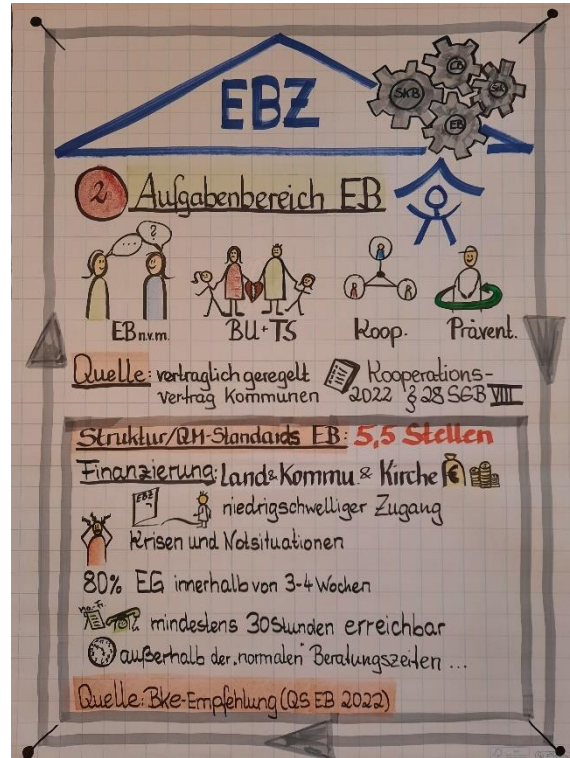 EBZ
SKB
CB
SB
EB
2 Aufgabenbereich EB
... ?
EB n.v.m. BU + TS Koop. Prävent.
Quelle: vertraglich geregelt Kooperations-
vertrag Kommunen 2022 § 28 SGB VIII
Struktur/QM-Standards EB: 5,5 Stellen
Finanzierung: Land & Kommu & Kirche €
EBZ niedrigschwelliger Zugang
Krisen und Notsituationen
80% EG innerhalb von 3-4 Wochen
Mo-Fr. mindestens 30 Stunden erreichbar
außerhalb der „normalen" Beratungszeiten ...
Quelle: Bke-Empfehlung (QS EB 2022)